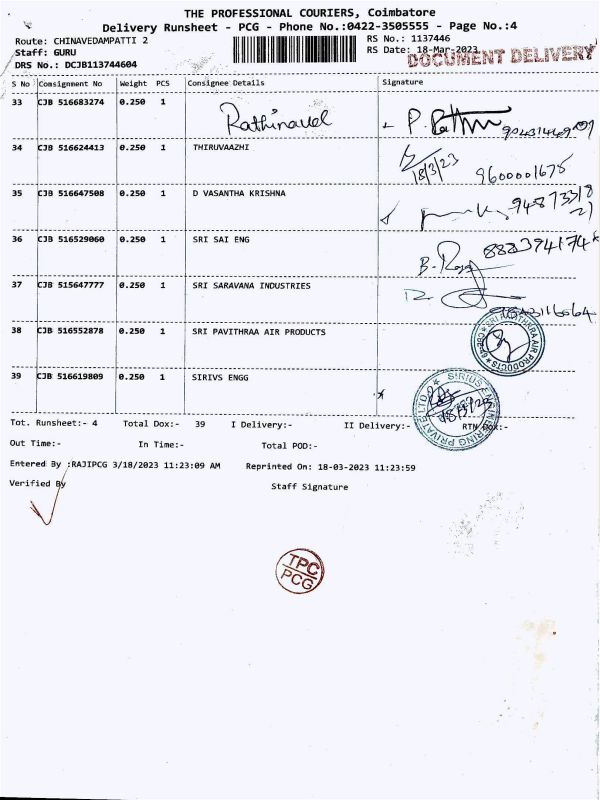 THE PROFESSIONAL COURIERS, Coimbatore
Delivery Runsheet - PCG - Phone No.:0422-3505555 - Page No.:4
Route: CHINAVEDAMPATTI 2
RS No.: 1137446
Staff: GURU
RS Date: 18-Mar-2023
DOCUMENT DELIVERY
DRS No.: DCJB113744604
S No Consignment No Weight PCS Consignee Details Signature
33 CJB 516683274 0.250 1 Rathinavel
34 CJB 516624413 0.250 1 THIRUVAAZHI
18/3/23 9600001675
35 CJB 516647508 0.250 1 D VASANTHA KRISHNA
36 CJB 516529060 0.250 1 SRI SAI ENG
37 CJB 515647777 0.250 1 SRI SARAVANA INDUSTRIES
38 CJB 516552878 0.250 1 SRI PAVITHRAA AIR PRODUCTS
39 CJB 516619809 0.250 1 SIRIVS ENGG
SIRIUS ENGINEERING PRIVATE LTD
Tot. Runsheet:- 4 Total Dox:- 39 I Delivery:- II Delivery:- RTN Dox:-
Out Time:- In Time:- Total POD:-
Entered By :RAJIPCG 3/18/2023 11:23:09 AM Reprinted On: 18-03-2023 11:23:59
Verified By Staff Signature
TPC
PCG